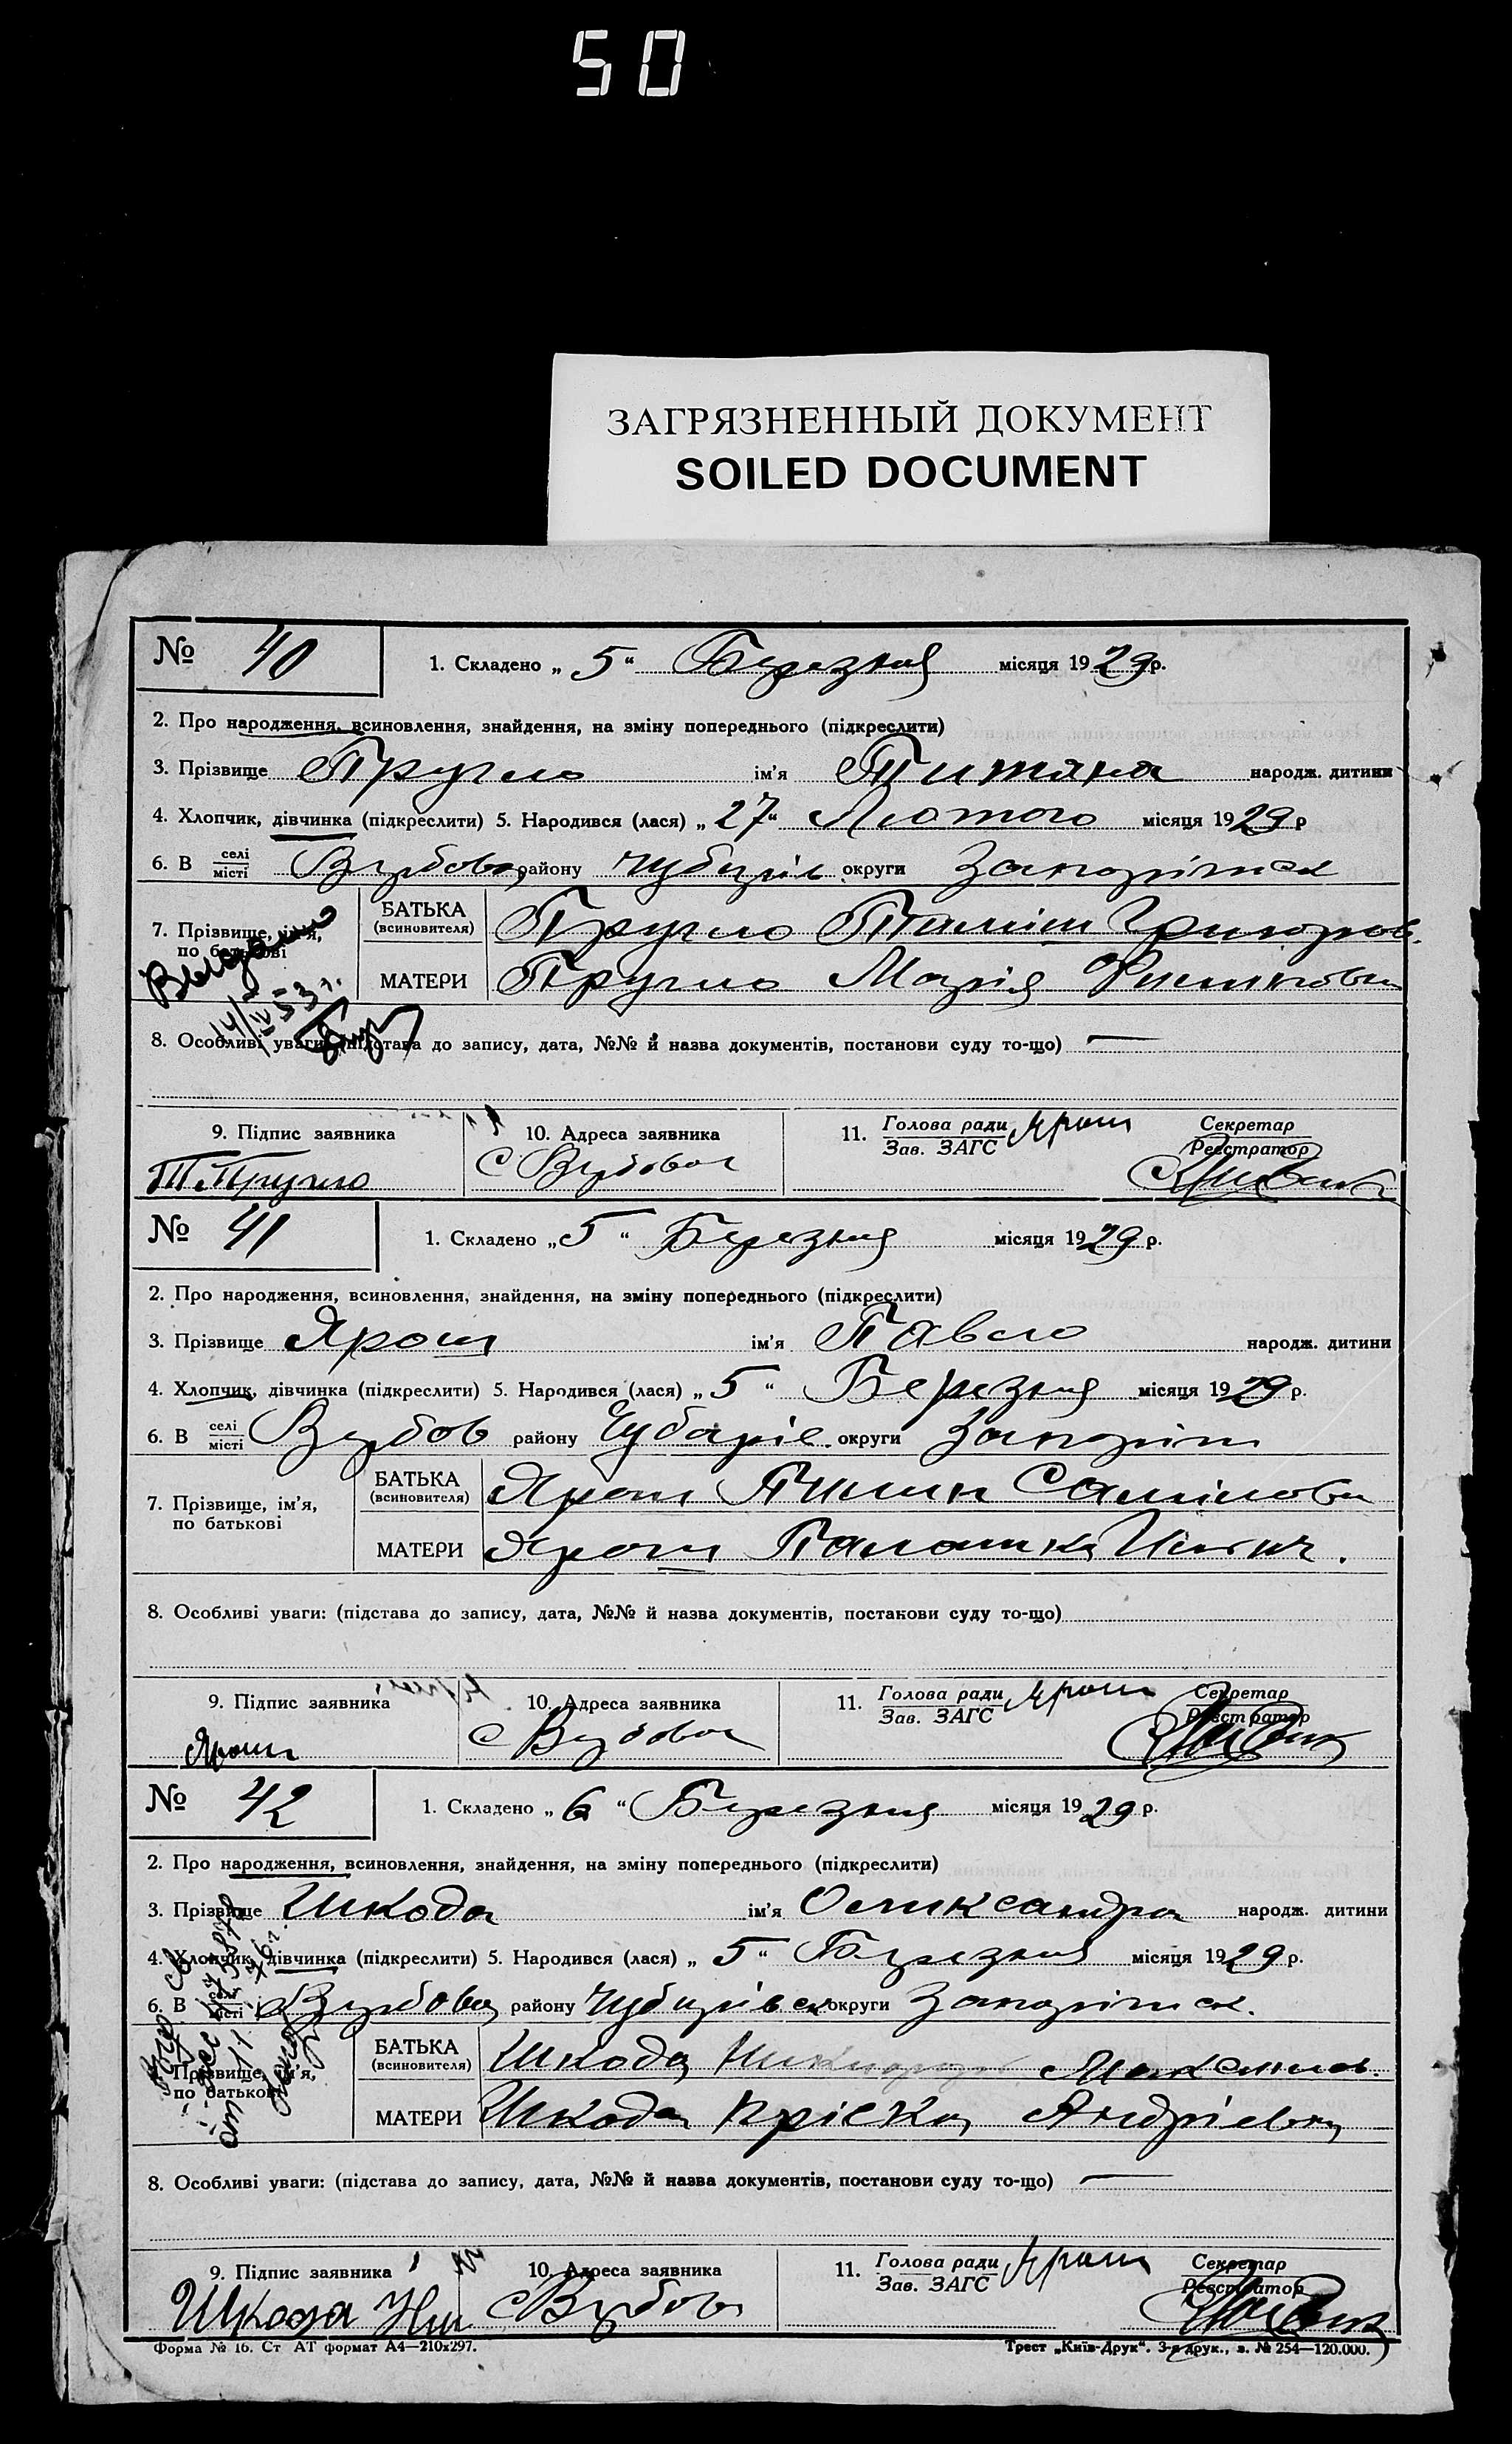 50
ЗАГРЯЗНЕННЫЙ ДОКУМЕНТ
SOILED DOCUMENT
№ 40
1. Складено „ 5 “ Березня місяця 1929 р.
2. Про народження, всиновлення, знайдення, на зміну попереднього (підкреслити)
3. Прізвище Пругло ім'я Титяна народж. дитини
4. Хлопчик, дівчинка (підкреслити) 5. Народився (лася) „ 27 “ Лютого місяця 1929 р
6. В селі місті Вербова району Чубарів округи Запоріжск
7. Прізвище, ім'я, по батькові
БАТЬКА (всиновителя) Пругло Григоров.
МАТЕРИ Пругло Марія
Выдано
14/IV 53 г.
8. Особливі уваги: (підстава до запису, дата, №№ й назва документів, постанови суду то-що) —
9. Підпис заявника
Т. Пругло
10. Адреса заявника
С Вербова
11. Голова ради Зав. ЗАГС Ярош
Секретар Реєстратор
№ 41
1. Складено „ 5 “ Березня місяця 1929 р.
2. Про народження, всиновлення, знайдення, на зміну попереднього (підкреслити)
3. Прізвище Ярош ім'я Павло народж. дитини
4. Хлопчик, дівчинка (підкреслити) 5. Народився (лася) „ 5 “ Березня місяця 1929 р.
6. В селі місті Вербов району Чубарів. округи Запоріж
7. Прізвище, ім'я, по батькові
БАТЬКА (всиновителя) Ярош Пилип
МАТЕРИ Ярош Палашка
8. Особливі уваги: (підстава до запису, дата, №№ й назва документів, постанови суду то-що)
9. Підпис заявника
Ярош
10. Адреса заявника
С Вербова
11. Голова ради Зав. ЗАГС Ярош
Секретар Реєстратор
№ 42
1. Складено „ 6 “ Березня місяця 1929 р.
2. Про народження, всиновлення, знайдення, на зміну попереднього (підкреслити)
3. Прізвище Шкода ім'я Оликсандра народж. дитини
4. Хлопчик, дівчинка (підкреслити) 5. Народився (лася) „ 5 “ Березня місяця 1929 р.
6. В селі місті Вербова району Чубарівск округи Запоріжск.
7. Прізвище, ім'я, по батькові
БАТЬКА (всиновителя) Шкода Максимов.
МАТЕРИ Шкода Пріська Андріевна
8. Особливі уваги: (підстава до запису, дата, №№ й назва документів, постанови суду то-що) —
9. Підпис заявника
Шкода
10. Адреса заявника
С Вербова
11. Голова ради Зав. ЗАГС Ярош
Секретар Реєстратор
Форма № 16. Ст АТ формат А4—210x297.
Трест „Київ-Друк“. 3-я друк., з. № 254—120.000.